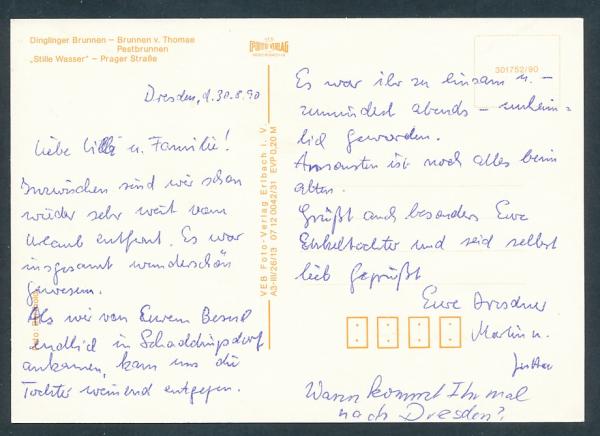 Dinglinger Brunnen – Brunnen v. Thomae
Pestbrunnen
„Stille Wasser“ – Prager Straße
VEB
FOTO VERLAG
301752/90
VEB Foto-Verlag Erlbach i. V.
A3-III/26/13 07 12 0042/31 EVP 0,20 M
Dresden, d. 30.8.90
Liebe Lilli u. Familie!
Inzwischen sind wir schon
wieder sehr weit vom
Urlaub entfernt. Es war
insgesamt wunderschön
gewesen.
Als wir von Eurem Besuch
endlich in Schaddingsdorf
ankamen, kam uns die
Tochter weinend entgegen.
Es war ihr zu einsam u. –
zumindest abends – unheim=
lich geworden.
Ansonsten ist noch alles beim
alten.
Grüßt auch besonders Eure
Enkeltochter und seid selbst
lieb gegrüßt
Eure Dresdner
Martin u.
Jutta
Wann kommt Ihr mal
nach Dresden?